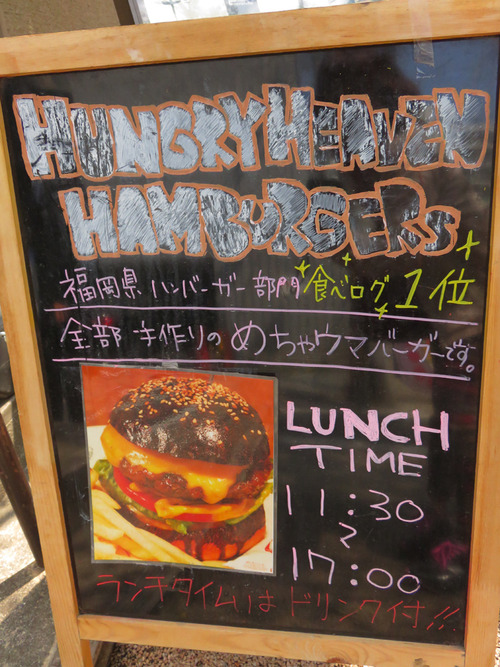 HUNGRY HEAVEN
HAMBURGERS
福岡県 ハンバーガー 部門 食べログ 1位
全部 手作りの めちゃウマバーガーです。
LUNCH
TIME
11:30
～
17:00
ランチタイムは ドリンク付!!